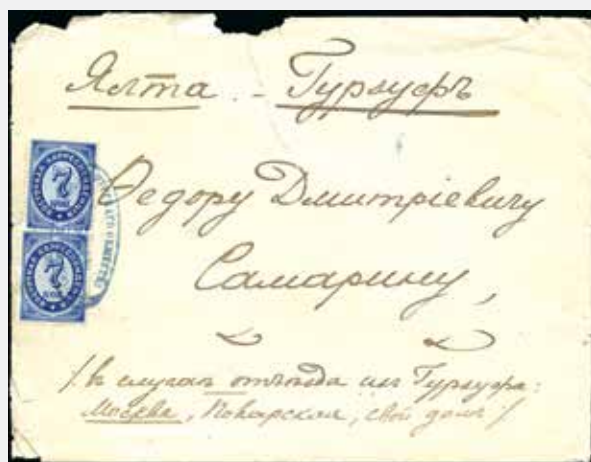 Ялта - Гурзуфъ
Ѳедору Дмитріевичу
Самарину,
/ въ случаѣ отъѣзда изъ Гурзуфа:
Москва, Поварская, свой домъ /
7
КОП.
7
КОП.